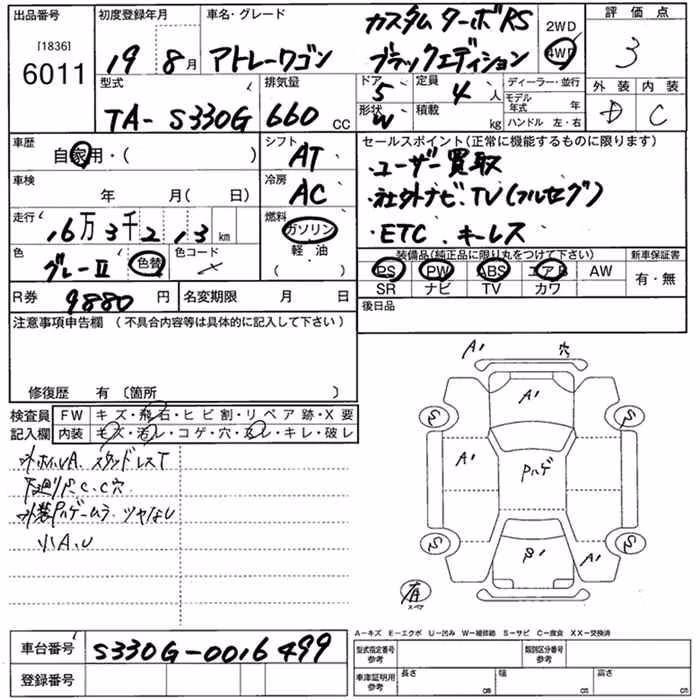 出品番号 初度登録年月 車名・グレード カスタム ターボRS 2WD 評価点
[1836] 6011 19 8月 アトレーワゴン ブラックエディション 4WD 3
型式 排気量 ドア 5 定員 4 人 ディーラー・並行 外装 内装
TA- S330G 660 CC 形状 W 積載 kg モデル年式 年 D C
ハンドル 左・右
車歴 シフト セールスポイント(正常に機能するものに限ります)
自家用・( ) AT ・ユーザー買取
車検 年 月( 日) 冷房 AC ・社外ナビ・TV(フルセグ)
走行 16万3千213km 燃料 ガソリン ・ETC キーレス
軽油
( )
色 グレーII 色替 色コード 装備品(純正品に限り丸をつけて下さい) 新車保証書
PS PW ABS エアB AW 有・無
R券 9880 円 名変期限 月 日 SR ナビ TV カワ
注意事項申告欄 (不具合内容等は具体的に記入して下さい) 後日品
修復歴 有 〔箇所 〕
検査員 FW キズ・飛石・ヒビ割・リペア跡・X要
記入欄 内装 キズ・汚レ・コゲ・穴・スレ・キレ・破レ
外ホイルA. スタッドレスT
下廻りS C. C穴
外装Pハゲームラ. ツヤなし
小A.U
A' 穴
A'
S S
A' Pハゲ
S S
A'
有
スペア
A−キズ E−エクボ U−凹み W−補修跡 S−サビ C−腐食 XX−交換済
車台番号 S330G-0016499 型式指定番号 参考 類別区分番号 参考
登録番号 車庫証明用 参考 長さ cm 幅 cm 高さ cm